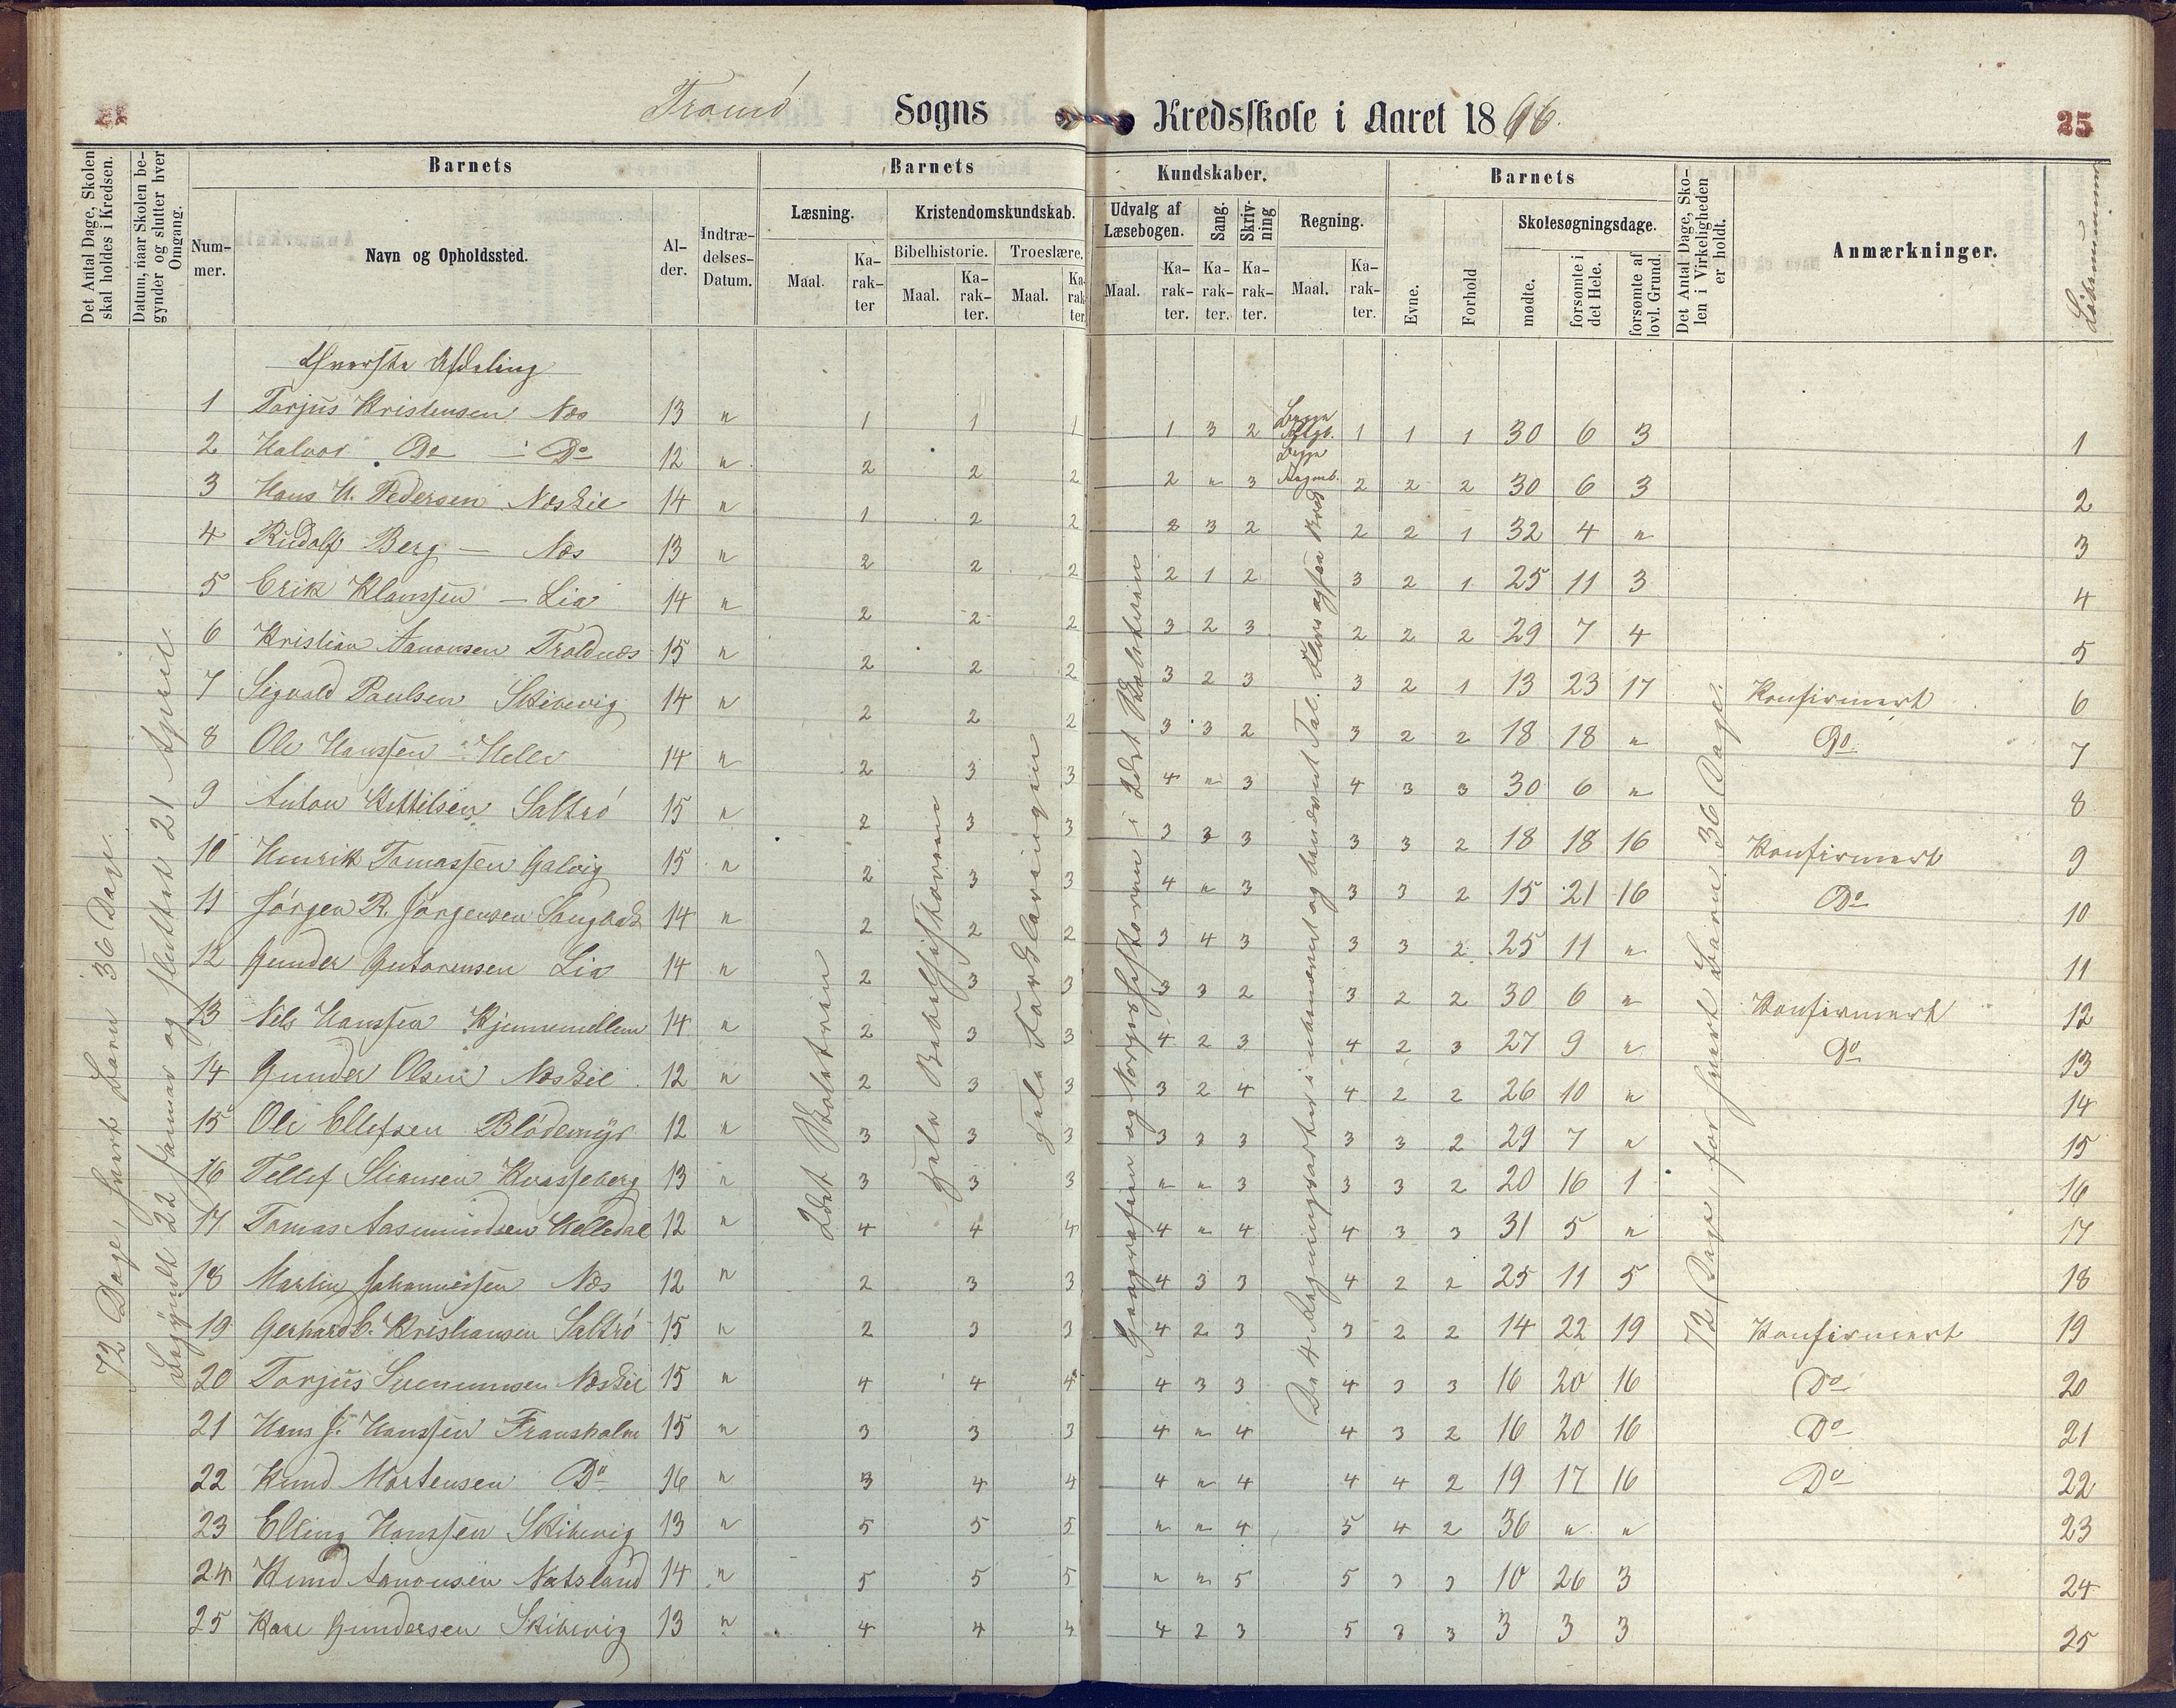 Tromö Sogns Kredsskole i Aaret 1866.
25
Det Antal Dage, Skolen skal holdes i Kredsen.
Datum, naar Skolen begynder og slutter hver Omgang.
Barnets
Nummer.
Navn og Opholdssted.
Alder.
Indtrædelses-Datum.
Barnets Kundskaber.
Læsning.
Maal.
Karakter
Kristendomskundskab.
Bibelhistorie.
Maal.
Karakter.
Troeslære.
Maal.
Karakter.
Udvalg af Læsebogen.
Maal.
Karakter.
Sang.
Karakter.
Skrivning
Karakter.
Regning.
Maal.
Karakter.
Barnets
Evne.
Forhold
Skolesøgningsdage.
mødte.
forsømte i det Hele.
forsømte af lovl. Grund.
Det Antal Dage, Skolen i Virkeligheden er holdt.
Anmærkninger.
Löbenummer
72 Dage, hvert Barn 36 Dage.
Begyndt 22 Januar og sluttet 21 April
2det Skoletrin
hele Bibelhistorien
hele Forklaringen
Geografien og Norgeshistorien i 2det Skoletrin
De 4 Regningsarter i ubenævnt og benævnt Tal.
72 Dage, for hvert Barn 36 Dage.
Øverste Afdeling
1 Torjus Kristensen Næs 13 " 1 1 1 1 3 2 1 1 1 30 6 3 1
2 Halvor Do - Do 12 " 2 2 2 2 " 3 2 2 2 30 6 3 2
3 Hans H. Pedersen Næskil 14 " 1 2 2 2 3 2 2 2 1 32 4 " 3
4 Rudolf Berg - Næs 13 " 2 2 2 2 1 2 3 2 1 25 11 3 4
5 Erik Klausen - Lia 14 " 2 2 2 3 2 3 2 2 2 29 7 4 5
6 Kristian Aanonsen Troldnæs 15 " 2 2 2 3 2 3 3 2 1 13 23 17 Konfirmert 6
7 Sigvald Paulsen Skibevig 14 " 2 2 2 3 3 2 3 2 2 18 18 " Do 7
8 Ole Hanssen Helle 14 " 2 3 3 4 " 3 4 3 3 30 6 " 8
9 Anton Kittilsen Saltrö 15 " 2 3 3 3 3 3 3 3 2 18 18 16 Konfirmert 9
10 Henrik Tomassen Galvig 15 " 2 3 3 4 " 3 3 3 2 15 21 16 Do 10
11 Jörgen R. Jörgensen 14 " 2 2 2 3 4 3 3 3 2 25 11 " 11
12 Gunder Gutormsen Lia 14 " 2 3 3 3 3 2 3 2 2 30 6 " Konfirmert 12
13 Nils Hanssen Hjemmellem 14 " 2 3 3 4 2 3 4 2 3 27 9 " Do 13
14 Gunder Olsen Næskil 12 " 2 3 3 3 2 4 4 2 2 26 10 " 14
15 Ole Ellefsen Blödemyr 12 " 3 3 3 3 3 3 3 3 2 29 7 " 15
16 Tellef Stiansen Kvasseberg 13 " 3 3 3 " " 3 3 3 2 20 16 1 16
17 Tomas Aasmundsen Helledal 12 " 4 4 4 4 " 4 4 3 3 31 5 " 17
18 Martin Johannessen Næs 12 " 2 3 3 4 3 3 4 2 2 25 11 5 18
19 Gerhard C. Kristiansen Saltrö 15 " 2 3 3 4 2 3 3 2 2 14 22 19 Konfirmert 19
20 Torjus Svenumsen Næskil 15 " 4 4 4 4 3 3 4 3 3 16 20 16 Do 20
21 Hans J. Hanssen Fransholm 15 " 3 3 3 4 " 4 4 3 2 16 20 16 Do 21
22 Knud Mortensen Do 16 " 3 4 4 4 " 4 4 4 2 19 17 16 Do 22
23 Elling Hanssen Skibevig 13 " 5 5 5 " " 4 5 4 2 36 " " 23
24 Knud Aanonsen Natsland 14 " 5 5 5 " " 5 5 3 3 10 26 3 24
25 Kare Gundersen Skibevig 13 " 4 4 4 4 2 3 5 3 3 3 3 3 25